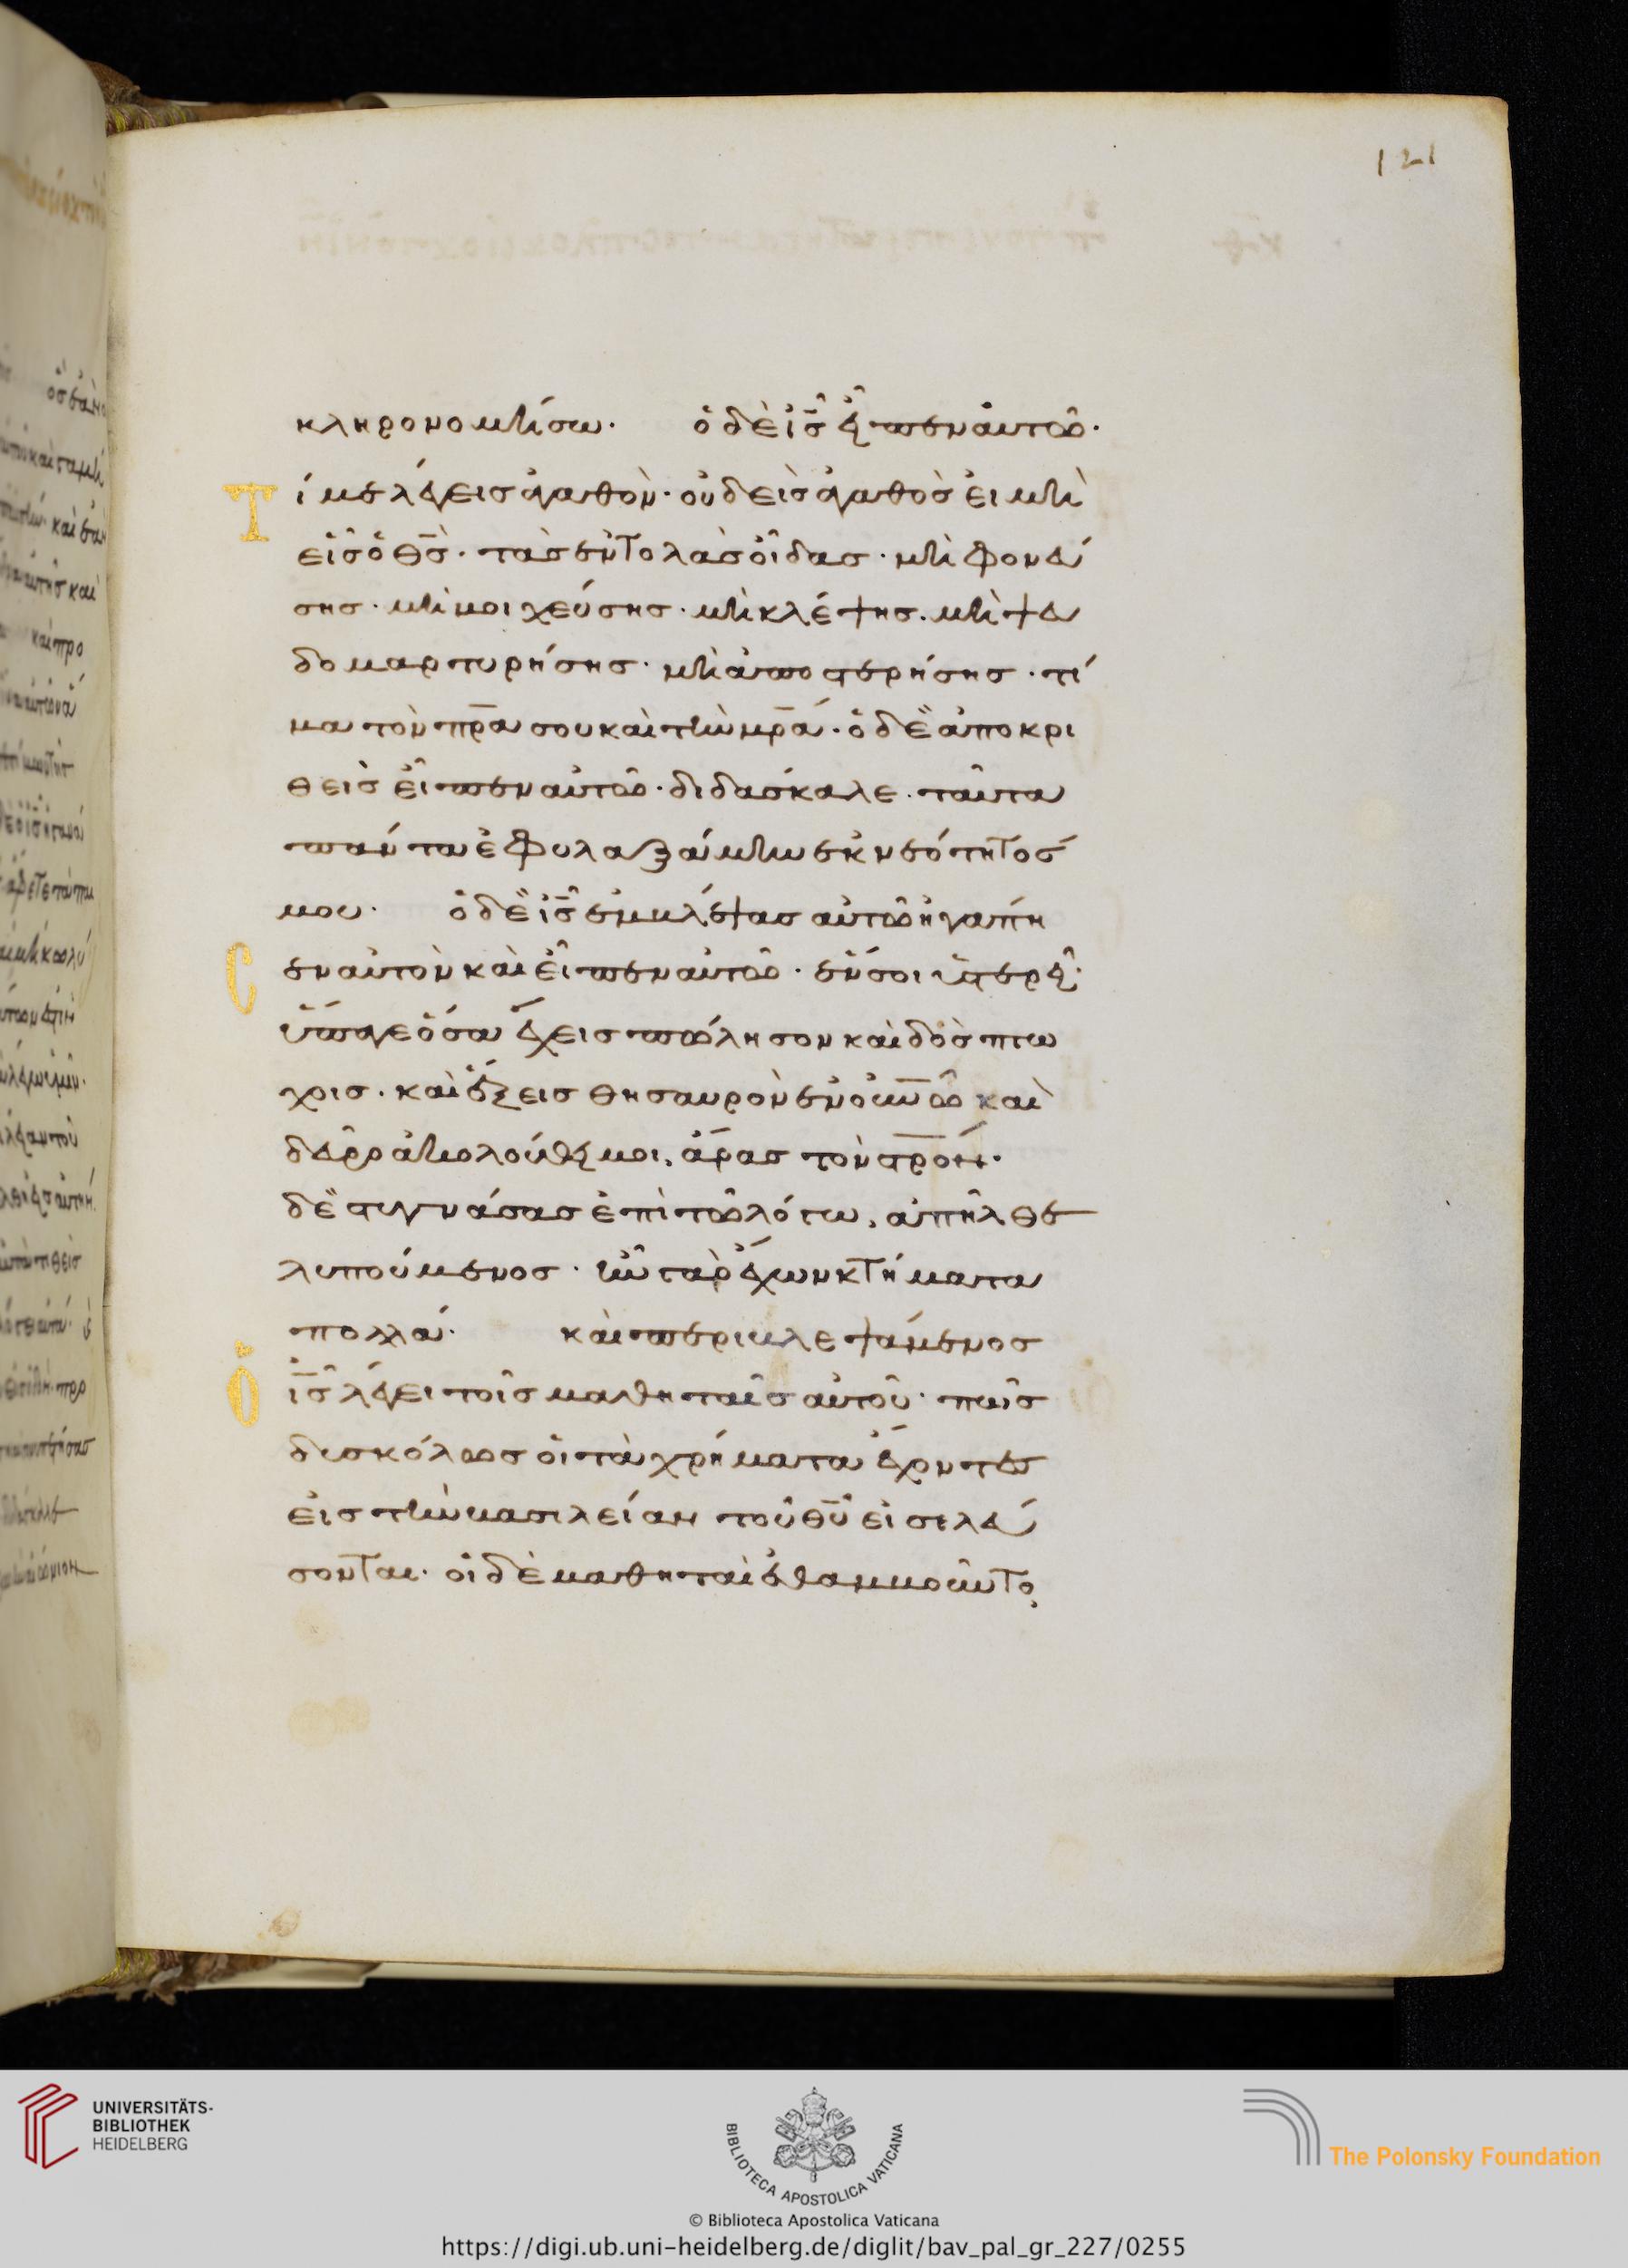 121
κληρονομήσω. ὁ δὲ ἰ̅ς̅ εἶπεν αὐτῶ·
Τί με λέγεις ἀγαθόν· οὐδεὶς ἀγαθὸς εἰ μὴ
εἷς ὁ θ̅ς̅· τὰς ἐντολὰς οἶδας· μὴ φονεύ
σης· μὴ μοιχεύσης· μὴ κλέψης. μὴ ψευ
δομαρτυρήσης· μὴ ἀποστερήσης· τί
μα τὸν π̅ρ̅α̅ σου καὶ τὴν μ̅ρ̅α̅· ὁ δὲ ἀποκρι
θεὶς εἶπεν αὐτῶ· διδάσκαλε· ταῦτα
πάντα ἐφυλαξάμην ἐκ νεότητός
μου· ὁ δὲ ἰ̅ς̅ ἐμβλέψας αὐτῶ ἠγάπη
Cεν αὐτὸν καὶ εἶπεν αὐτῶ· ἕν σοι ὑστερεῖ·
ὕπαγε ὅσα ἔχεις πώλησον καὶ δὸς πτω
χοις· καὶ ἕξεις θησαυρὸν ἐν ο̅υ̅ν̅ω̅ καὶ
δεῦρο ἀκολούθει μοι, ἄρας τὸν σ̅ρ̅ο̅ν̅·
δὲ στυγνάσας ἐπὶ τῶ λόγω, ἀπῆλθε
λυπούμενος· ἦν γὰρ ἔχων κτήματα
πολλά· καὶ περιβλεψάμενος
Ὁ ἰ̅ς̅ λέγει τοῖς μαθηταῖς αὐτοῦ· πῶς
δυσκόλως οἱ τὰ χρήματα ἔχοντες
εἰς τὴν βασιλείαν τοῦ θ̅υ̅ εἰσελεύ
σονται· οἱ δὲ μαθηταὶ ἐθαμβοῦντο
UNIVERSITÄTS-
BIBLIOTHEK
HEIDELBERG
BIBLIOTECA APOSTOLICA VATICANA
The Polonsky Foundation
© Biblioteca Apostolica Vaticana
https://digi.ub.uni-heidelberg.de/diglit/bav_pal_gr_227/0255